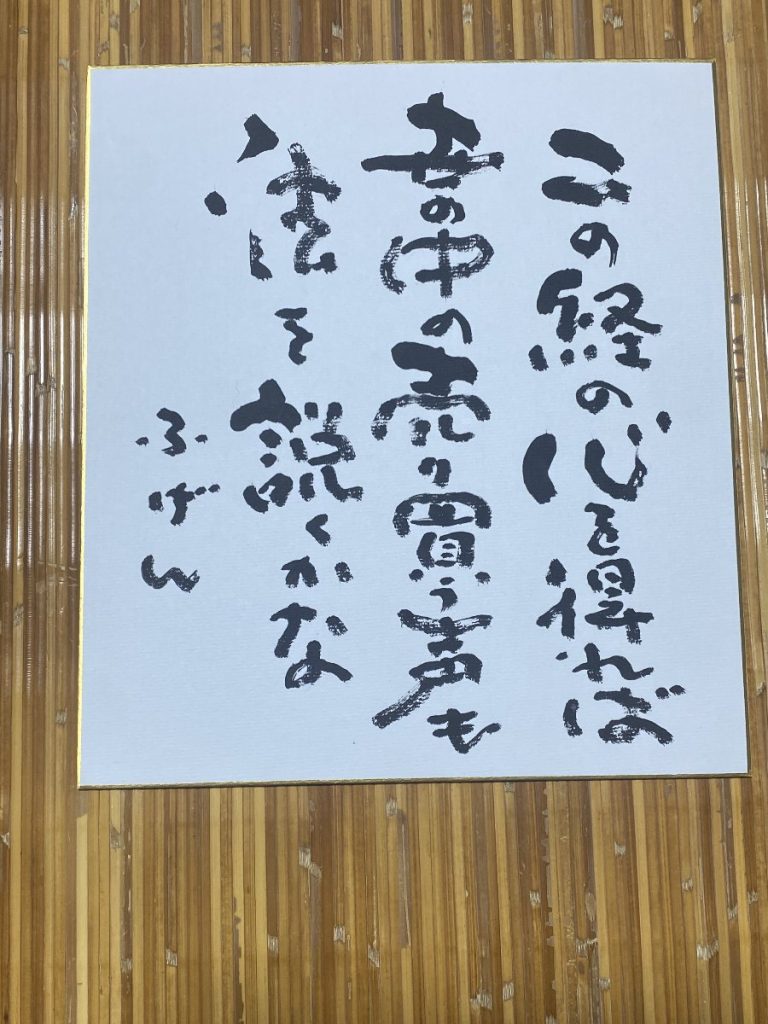 この経の心を得れば
世の中の売り買う声も
法を説くかな
ふげん